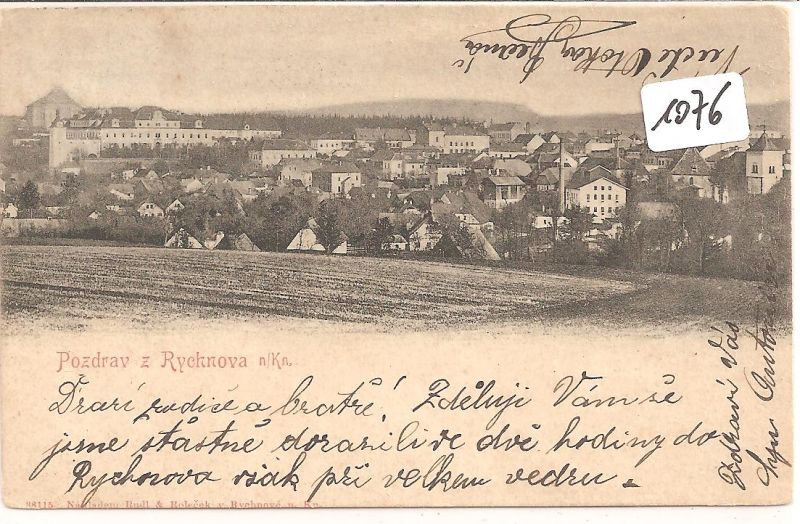 1076
Pozdrav z Rychnova n/Kn.
Drazí rodiče a bratře! Zděluji Vám že
jsme šťastně dorazili ve dvě hodiny do
Rychnova však při velkem vedru.
Zdraví Vás
syn Antonín
38115 Nákladem Rudl & Roleček v Rychnově n. Kn.